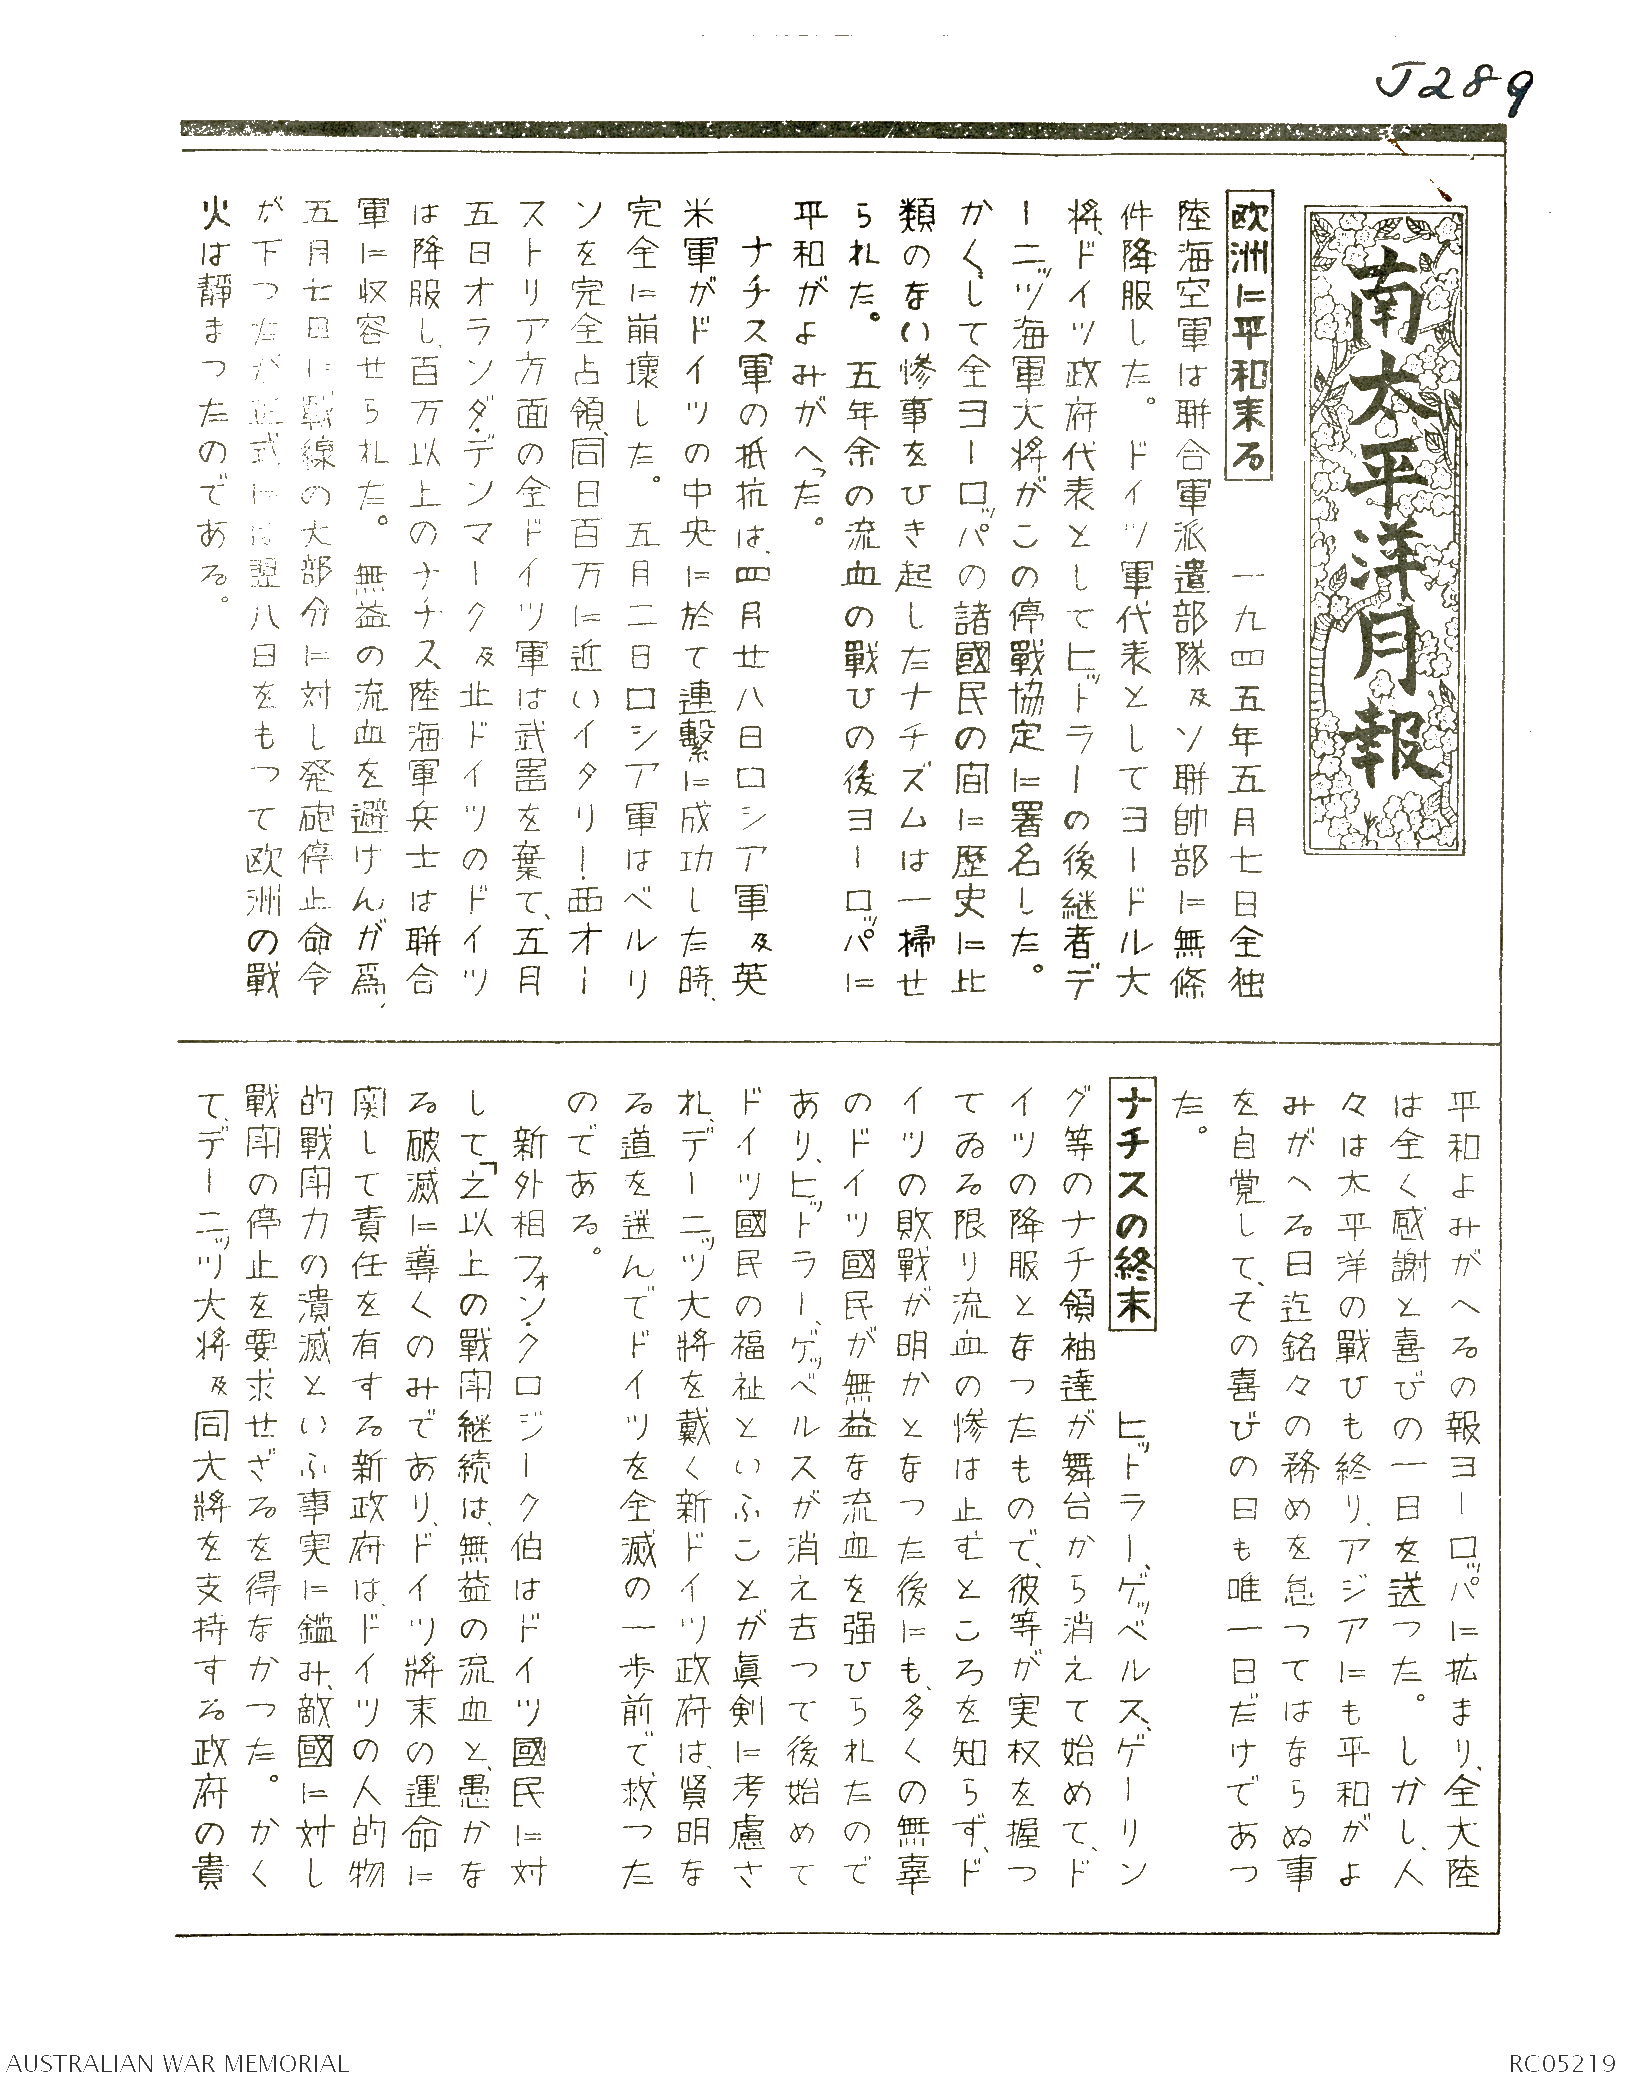 J289
南太平洋月報
欧洲に平和来る　一九四五年五月七日全独
陸海空軍は聯合軍派遣部隊及ソ聯帥部に無條
件降服した。ドイツ軍代表としてヨードル大
将、ドイツ政府代表としてヒットラーの後継者デ
ーニッツ海軍大将がこの停戰協定に署名した。
かくして全ヨーロッパの諸國民の間に歴史に比
類のない惨事をひき起したナチズムは一掃せ
られた。五年余の流血の戰ひの後ヨーロッパに
平和がよみがへった。
ナチス軍の抵抗は、四月廿八日ロシア軍及英
米軍がドイツの中央に於て連繫に成功した時、
完全に崩壊した。五月二日ロシア軍はベルリ
ンを完全占領、同日百万に近いイタリー西オー
ストリア方面の全ドイツ軍は武器を棄て、五月
五日オランダ・デンマーク及北ドイツのドイツ
は降服し、百万以上のナチス陸海軍兵士は聯合
軍に収容せられた。無益の流血を避けんが爲、
五月七日に戰線の大部分に対し発砲停止命令
が下つたが正式には翌八日をもつて欧洲の戰
火は静まつたのである。
平和よみがへるの報ヨーロッパに拡まり、全大陸
は全く感謝と喜びの一日を送つた。しかし、人
々は太平洋の戰ひも終り、アジアにも平和がよ
みがへる日迄銘々の務めを怠つてはならぬ事
を自覚して、その喜びの日も唯一日だけであつ
た。
ナチスの終末　ヒットラー、ゲッベルス、ゲーリン
グ等のナチ領袖達が舞台から消えて始めて、ド
イツの降服となつたもので、彼等が実权を握つ
てゐる限り流血の惨は止むところを知らず、ド
イツの敗戰が明かとなつた後にも、多くの無辜
のドイツ國民が無益な流血を强ひられたので
あり、ヒットラー、ゲッベルスが消え去つて後始めて
ドイツ國民の福祉といふことが眞剣に考慮さ
れ、デーニッツ大将を戴く新ドイツ政府は、賢明な
る道を選んでドイツを全滅の一歩前で、救つた
のである。
新外相フォン・クロジーク伯はドイツ國民に対
して「之以上の戰闘継続は、無益の流血と、愚かな
る破滅に導くのみであり、ドイツ將来の運命に
関して責任を有する新政府は、ドイツの人的物
的戰闘力の潰滅といふ事実に鑑み、敵國に対し
戰闘の停止を要求せざるを得なかつた。かく
て、デーニッツ大将及同大將を支持する政府の責
AUSTRALIAN WAR MEMORIAL
RC05219